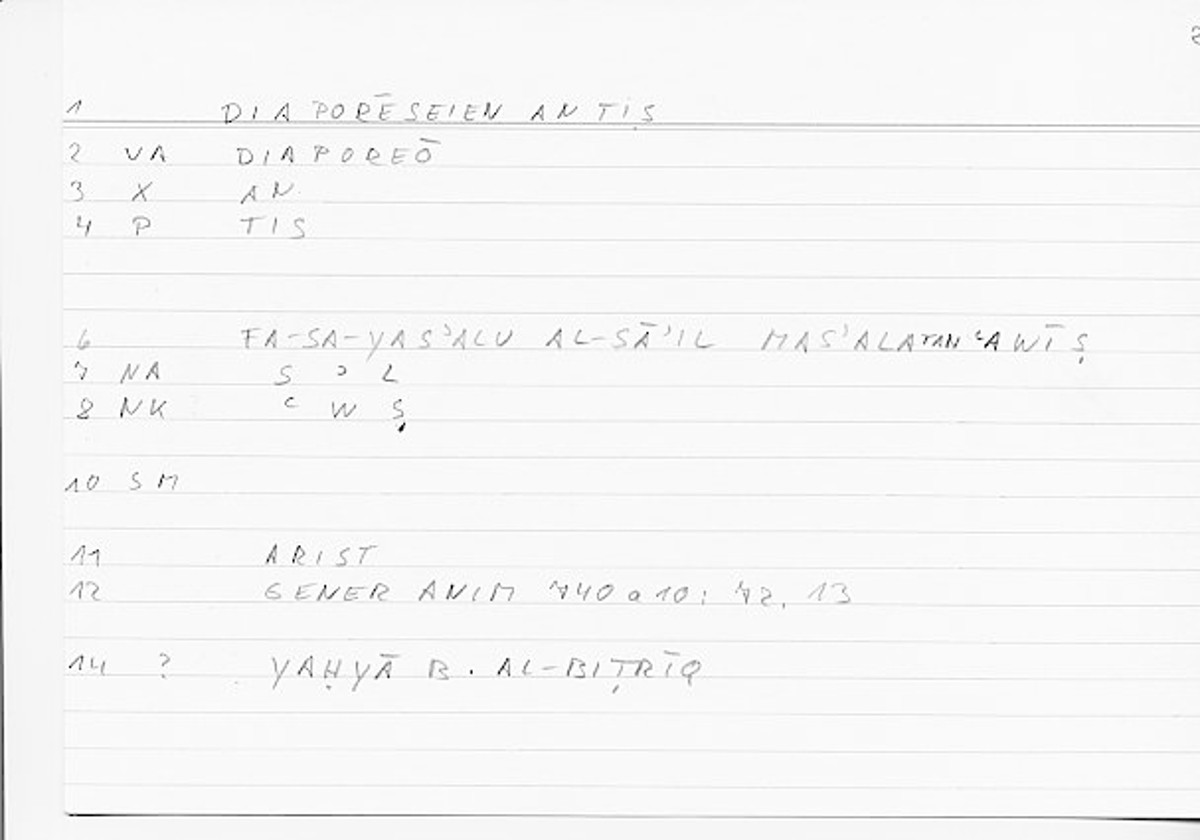 1 DIAPORĒSEIEN AN TIS
2 VA DIAPOREŌ
3 X AN
4 P TIS
6 FA-SA-YASʾALU AL-SĀʾIL MASʾALATAN ʿAWĪṢ
7 NA S ʾ L
8 NK ʿ W Ṣ
10 SM
11 ARIST
12 GENER ANIM 740a10; 72, 13
14 ? YAḤYĀ B. AL-BIṬRĪQ